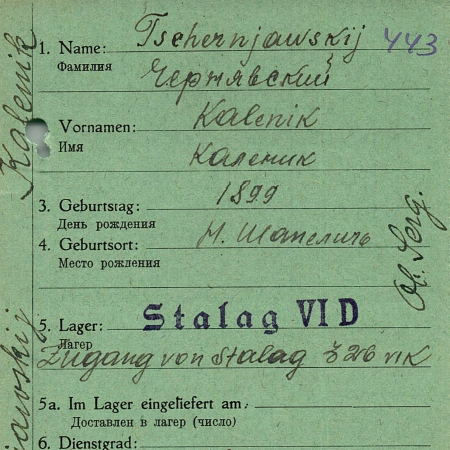 1. Name: Tschernjawskij 443
Фамилия Чернявский
Vornamen: Kalenik
Имя Каленик
3. Geburtstag: 1899
День рождения
4. Geburtsort: М. Шапеличь
Место рождения
5. Lager: Stalag VI D
Лагерь
Zugang von Stalag 326 VI K
5a. Im Lager eingeliefert am:
Доставлен в лагерь (число)
6. Dienstgrad:
Kalenik
Ob. Serg.